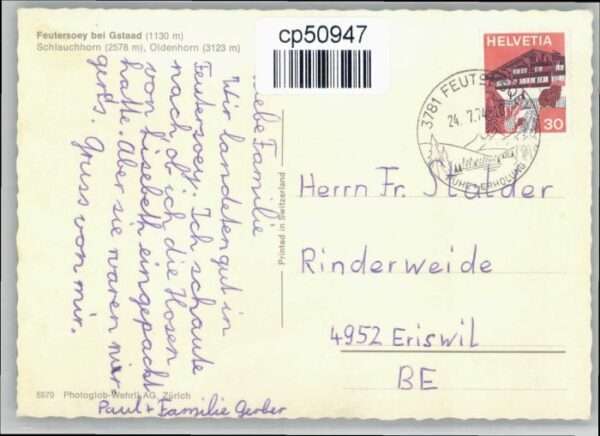 Feutersoey bei Gstaad (1130 m)
Schlauchhorn (2578 m), Oldenhorn (3123 m)
cp50947
HELVETIA
30
3781 FEUTSOEY
24. 7. 74
RUHE ERHOLUNG
Liebe Familie
Wir landeten gut in
Feutersoey. Ich schaute
nach ob ich die Hosen
von Lisebeth eingepackt
hatte. Aber sie waren nir-
gerds. Gruss von mir.
Paul + Familie Gerber
Printed in Switzerland
Herrn Fr. Stalder
Rinderweide
4952 Eriswil
BE
5570 Photoglob-Wehrli AG, Zürich